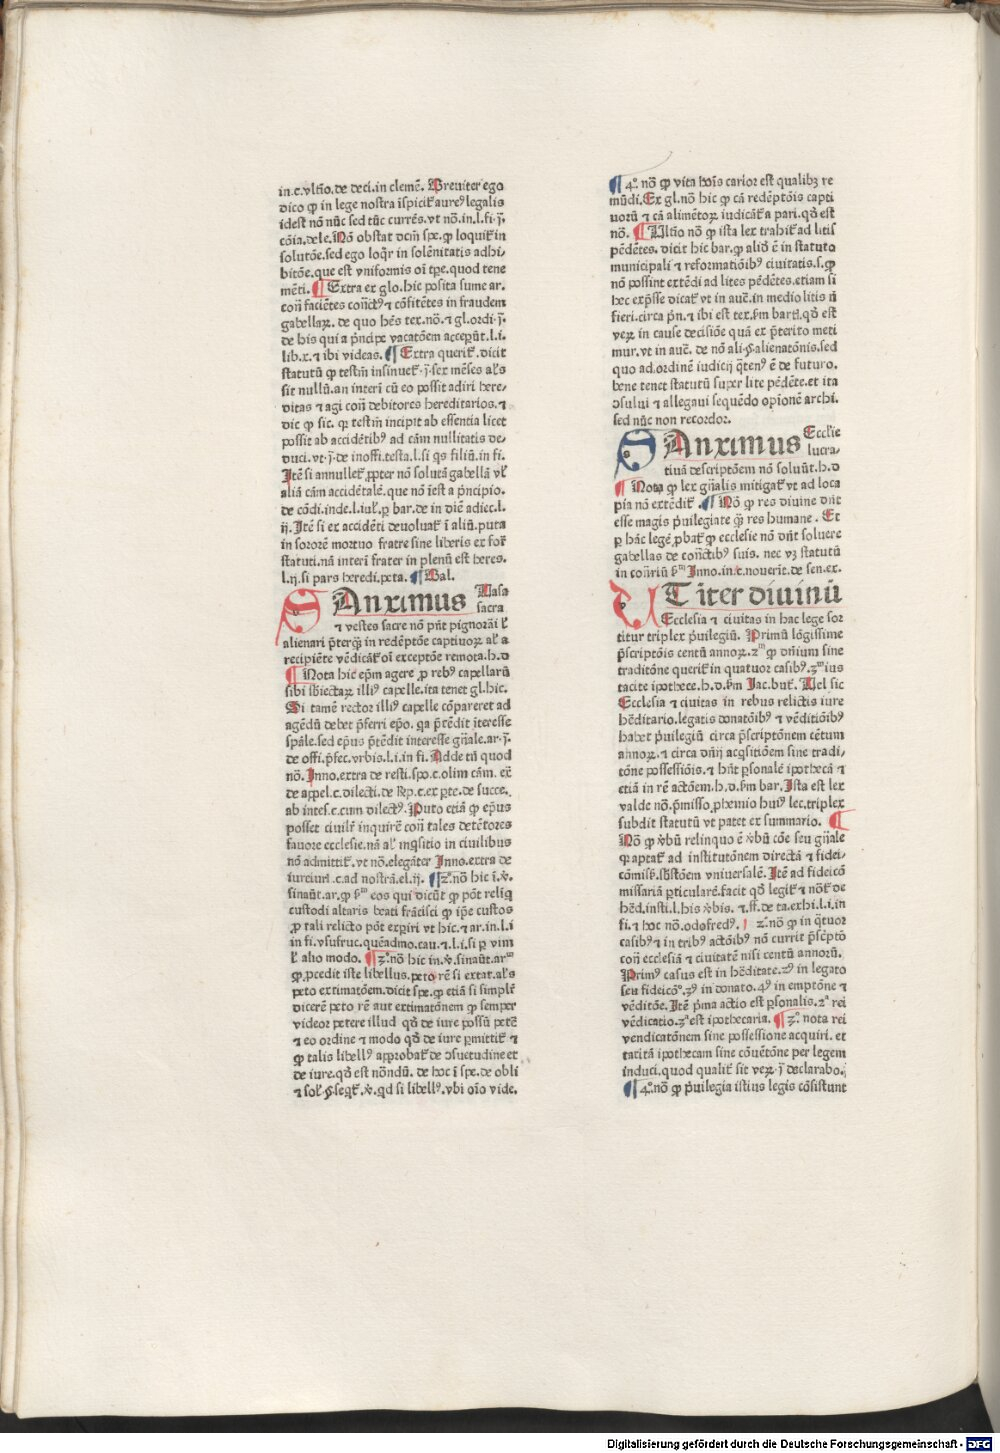 in.c.vltīo.de deci.in clemē. Breuiter ego
dico ꝙ in lege nostra īspicit᷑ aureꝰ legalis
idest nō nūc sed tūc currēs.vt nō.in.l.fi.ī.
cōia.de le. Nō obstat dcm̄ spe.ꝙ loquit᷑ in
solutōe.sed ego loqr̄ in solēnitatis adhi⸗
bitōe.que est vniformis oī tꝑe.quod tene
mēti. ¶ Extra ex glo.hic posita sume ar.
con̄ faciētes con̄ctꝰ ⁊ cōfitētes in fraudem
gabellaꝝ. de quo hēs tex.nō.⁊ gl.ordi.ī.
de his qui a pn̄cipe vacatōem acceperūt.l.i.
lib.x.⁊ ibi videas. ¶ Extra querit᷑.dicit
statutū ꝙ testm̄ insinuet᷑.ī.sex mēses al's
sit nullū.an interi cū eo possit adiri here⸗
ditas ⁊ agi con̄ debitores hereditarios.⁊
dic ꝙ sic. qꝛ testm̄ incipit ab essentia licet
possit ab accidētibꝰ ad cām nullitatis de⸗
duci.vt.ī.de inoffi.testa.l.si qs filiū.in fi.
Itē si annullet᷑.ꝓpter nō solutā gabellā vl'
aliā cām accidētalē.que nō īest a pn̄cipio.
de cōdi.inde.l.iul'.ꝑ bar.de in diē adiec.l.
ij. Itē si ex accidēti deuoluat᷑ ī aliū.puta
in sororē mortuo fratre sine liberis ex for᷑
statuti.nā interī frater in plenū est heres.
l.ij.si pars heredi.peta. ¶ Bal.
SAnximus Uasa
sacra
⁊ vestes sacre nō pn̄t pignorāi l'
alienari pterqꝫ in redēptōe captiuoꝝ al' a
recipiēte vēdicāt᷑ oī exceptōe remota.h.d
¶ Nota hic epm̄ agere ꝓ rebꝰ capellarū
sibi sb̄iectaꝝ illiꝰ capelle.ita tenet gl.hic.
Si tamē rector illiꝰ capelle cōpareret ad
agēdū debet p̄ferri ep̄o. qꝛ p̄tēdit īteresse
spāle.sed ep̄us p̄tēdit interesse gn̄ale.ar.ī.
de offi.p̄fec.vrbis.l.i.in fi. Adde tū quod
nō. Inno.extra de resti.spo.c.olim cām. ex̄
de appel.c.dilecti.de Rp.c.ex ꝑte.de succe.
ab intes.c.cum dilectꝰ. Puto etiā ꝙ ep̄us
posset ciuilr̄ inquirere con̄ tales detētores
fauore ecclesie.nā al' inq̄sitio in ciuilibus
nō admittit᷑.vt nō.eleganter Inno.extra de
iureiur.c.ad nostrā.el.ij. ¶ 2°.nō hic ī.v̄.
sinaūt.ar.ꝙ ẜm eos qui dicūt ꝙ pōt reliq
custodi altaris beati frācisci ꝙ ip̄e custos
ꝓ tali relicto pōt exꝑiri vt hic.⁊ ar.in.l.i
in fi.vsufruc.quēadmo.cau.⁊.l.i.si ꝑ vim
l' alio modo. ¶ 3°.nō hic in.v̄.sinaūt.arᵐ
ꝙ.ꝓcedit iste libellus.peto rē si extat.al's
peto extimatōem.dicit spe.ꝙ etiā si simplr̄
dicerē peto rē aut extimatōnem ꝙ semper
videor petere illud qđ de iure possū petē
⁊ eo ordine ⁊ modo qđ de iure ꝑmittit᷑ ⁊
ꝙ talis libellꝰ approbat᷑ de ꝯsuetudine et
de iure.qđ est nōndū. de hoc ī spe.de obli
⁊ sol'.§.seqt᷑.v̄.qd si libellꝰ.vbi oīo vide.
¶ 4°.nō ꝙ vita hoīs carior est qualibꝫ re
mūdi. Ex gl.nō hic ꝙ cā redēptōis capti
uorū ⁊ cā alimētoꝝ iudicāt᷑ a pari.qđ est
nō. ¶ Ultīo nō ꝙ ista lex trahit᷑ ad litis
pēdētes. dicit hic bar.ꝙ aliđ ē in statuto
municipali ⁊ reformatiōibꝰ ciuitatis.s.ꝙ
nō possint extēdi ad lites pēdētes.etiam si
hec exp̄sse dicat᷑ vt in auē.in medio litis n̄
fieri.circa pn̄.⁊ ibi est tex.ẜm bartl.qđ est
veꝝ in cause decisiōe quā ex p̄terito meti
mur.vt in auē. de nō ali.§.alienatōnis.sed
quo ad.ordinē iudicij qtenꝰ ē de futuro.
bene tenet statutū super lite pēdēte.et ita
ꝯsului ⁊ allegaui sequēdo opīonē archi.
sed nūc non recordor.
SAnximus Ecclīe
lucra⸗
tiuā descriptōem nō soluūt.h.d
¶ Nota ꝙ lex gn̄alis mitigat᷑ vt ad loca
pia nō extēdit᷑. ¶ Nō ꝙ res diuine dn̄t
esse magis p̄uilegiate qꝫ res humane. Et
ꝑ hāc legē ꝓbat᷑ ꝙ ecclesie nō dn̄t soluere
gabellas de con̄ctibꝰ suis. nec vꝫ statutū
in con̄riū ẜm Inno.in.c.nouerit.de sen.ex.
UT iter diuinū
Ecclesia ⁊ ciuitas in hac lege sor
titur triplex p̄uilegiū. Primū lōgissime
p̄scriptōis centū annoꝝ. 2ᵐ ꝙ dn̄ium sine
traditōne querit᷑ in quatuor casibꝰ. 3ᵐ ius
tacite ipothece.h.d.ẜm Iac.but᷑. Uel sic
Ecclesia ⁊ ciuitas in rebus relictis iure
hēditario.legatis donatōibꝰ ⁊ vēditiōibꝰ
habet p̄uilegiū circa p̄scriptōnem cētum
annoꝝ.⁊ circa dn̄ij acq̄sitiōem sine tradi⸗
tōne possessiōis.⁊ hn̄t ꝑsonalē ipothecā ⁊
etiā in rē actōem.h.d.ẜm bar. Ista est lex
valde nō.p̄misso ꝓhemio huiꝰ lec.triplex
subdit statutū vt patet ex summario. ¶
Nō ꝙ v̄bū relinquo ē v̄bū cōe seu gn̄ale
qꝛ aptat᷑ ad institutōnem directā ⁊ fidei⸗
cōmisẜ.sb̄stōem vniuersalē. Itē ad fideicō
missariā ꝑticularē.facit qđ legit᷑ ⁊ nōt᷑ de
hēd.insti.l.his v̄bis.⁊.ff.de ta.exhi.l.i.in
fi.⁊ hoc nō.odofredꝰ. ¶ 2°.nō ꝙ in qtuor
casibꝰ ⁊ in tribꝰ actōibꝰ nō currit p̄scptō
con̄ ecclesiā ⁊ ciuitatē nisi centū annorū.
Primꝰ casus est in hēditate.2ꝰ in legato
seu fideicō°.3ꝰ in donato.4ꝰ in emptōne ⁊
vēditōe. Itē p̄ma actio est ꝑsonalis.2ᵃ rei
vēdicatio.3ᵃ est ipothecaria. ¶ 3°.nota rei
vendicatōnem sine possessione acquiri. et
tacitā ipothecam sine cōuētōne per legem
induci.quod qualit᷑ sit veꝝ.ī declarabo.
¶ 4°.nō ꝙ p̄uilegia istius legis cōsistunt
Digitalisierung gefördert durch die Deutsche Forschungsgemeinschaft - DFG